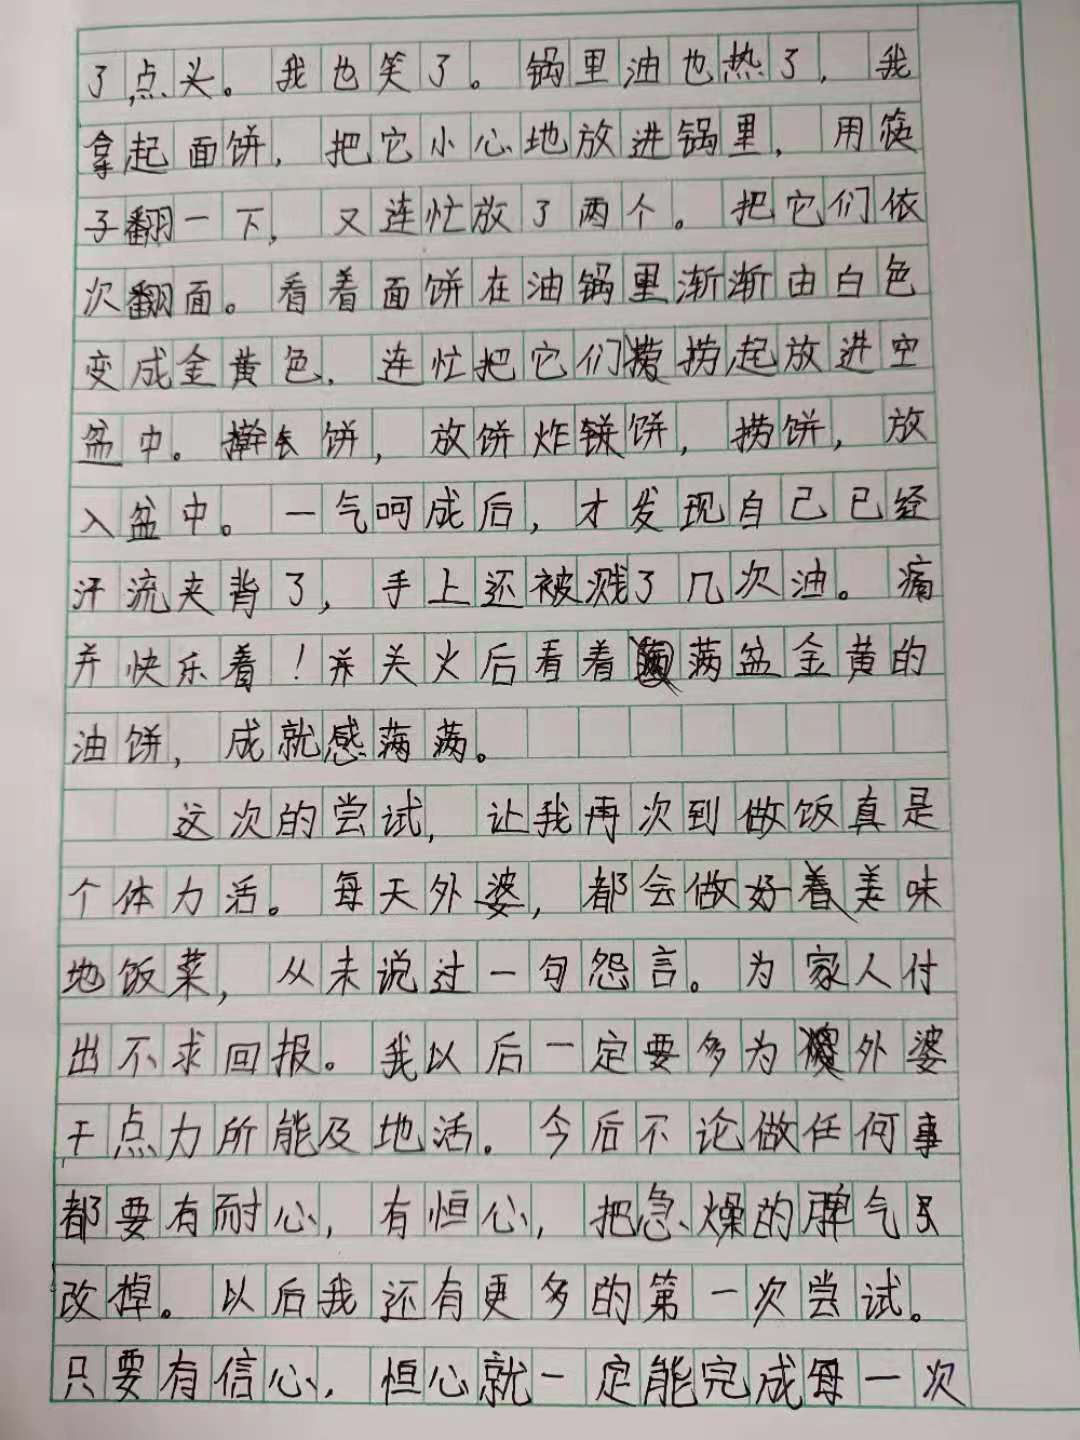 了点头。我也笑了。锅里油也热了，我
拿起面饼，把它小心地放进锅里，用筷
子翻一下，又连忙放了两个。把它们依
次翻面。看着面饼在油锅里渐渐由白色
变成金黄色，连忙把它们捞起放进空
盆中。擀饼，放饼炸饼，捞饼，放
入盆中。一气呵成后，才发现自己已经
汗流夹背了，手上还被溅了几次油。痛
并快乐着！关火后看着满盆金黄的
油饼，成就感满满。
这次的尝试，让我再次到做饭真是
个体力活。每天外婆，都会做好着美味
地饭菜，从未说过一句怨言。为家人付
出不求回报。我以后一定要多为外婆
干点力所能及地活。今后不论做任何事
都要有耐心，有恒心，把急燥的脾气
改掉。以后我还有更多的第一次尝试。
只要有信心，恒心就一定能完成每一次